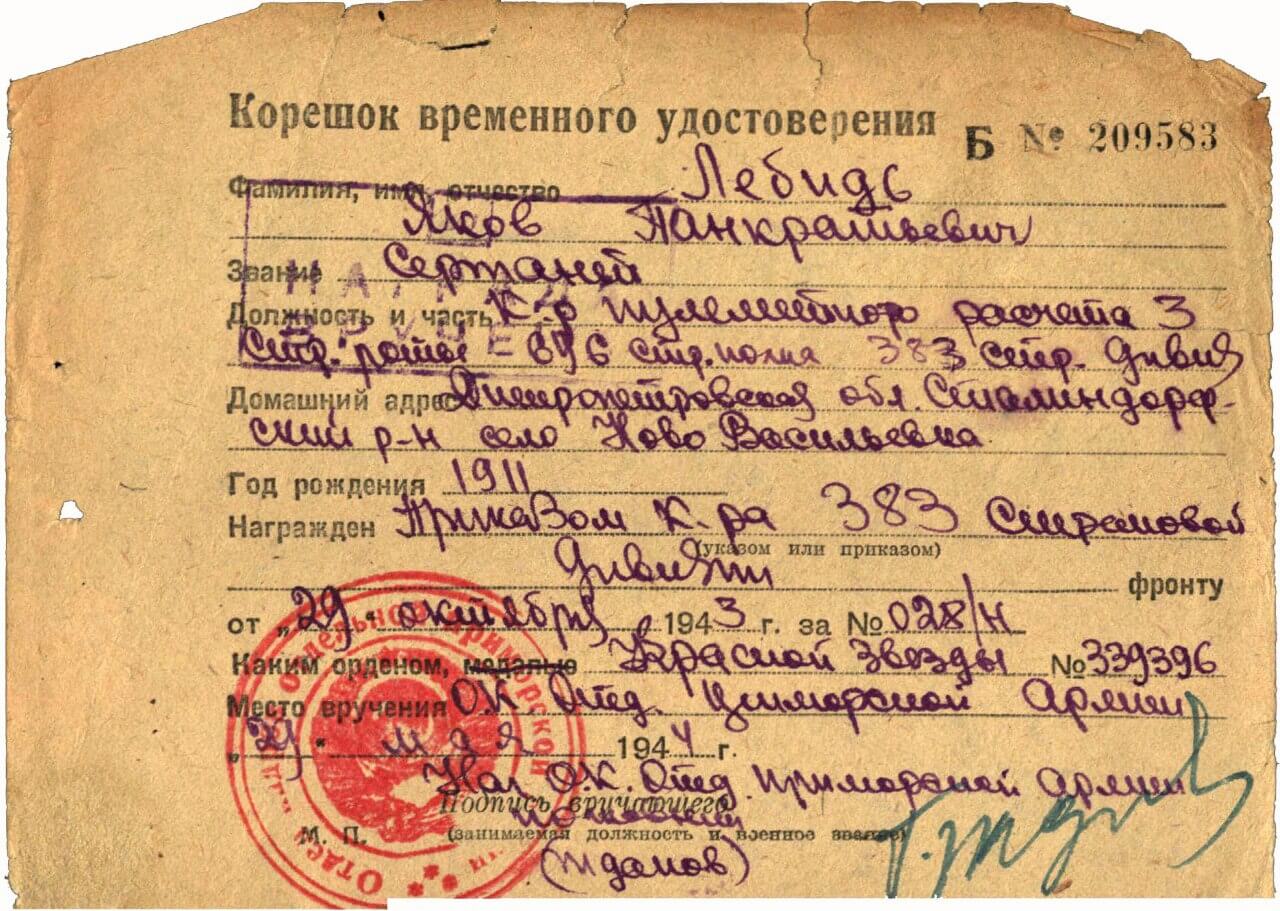 Корешок временного удостоверения Б № 209583
Фамилия, имя, отчество Лебидь
Яков Панкратьевич
Звание Сержант
НАГРАДА
Должность и часть К-р пулеметного расчета 3
стр. роты 696 стр. полка 383 стр. дивиз
Домашний адрес Днепропетровская обл. Сталиндорф-
ский р-н село Ново Васильевка
Год рождения 1911
Награжден Приказом К-ра 383 Стрелковой
(указом или приказом)
дивизии фронту
от „29“ октября 1943 г. за № 028/н
Каким орденом, медалью Красной Звезды № 339396
Место вручения ОК Отд. Приморской Армии
„29“ мая 1944 г.
Нач О.К. Отд Приморской Армии
Подпись вручающего
М. П. (занимаемая должность и военное звание)
(Жданов)
Отдельной Приморской